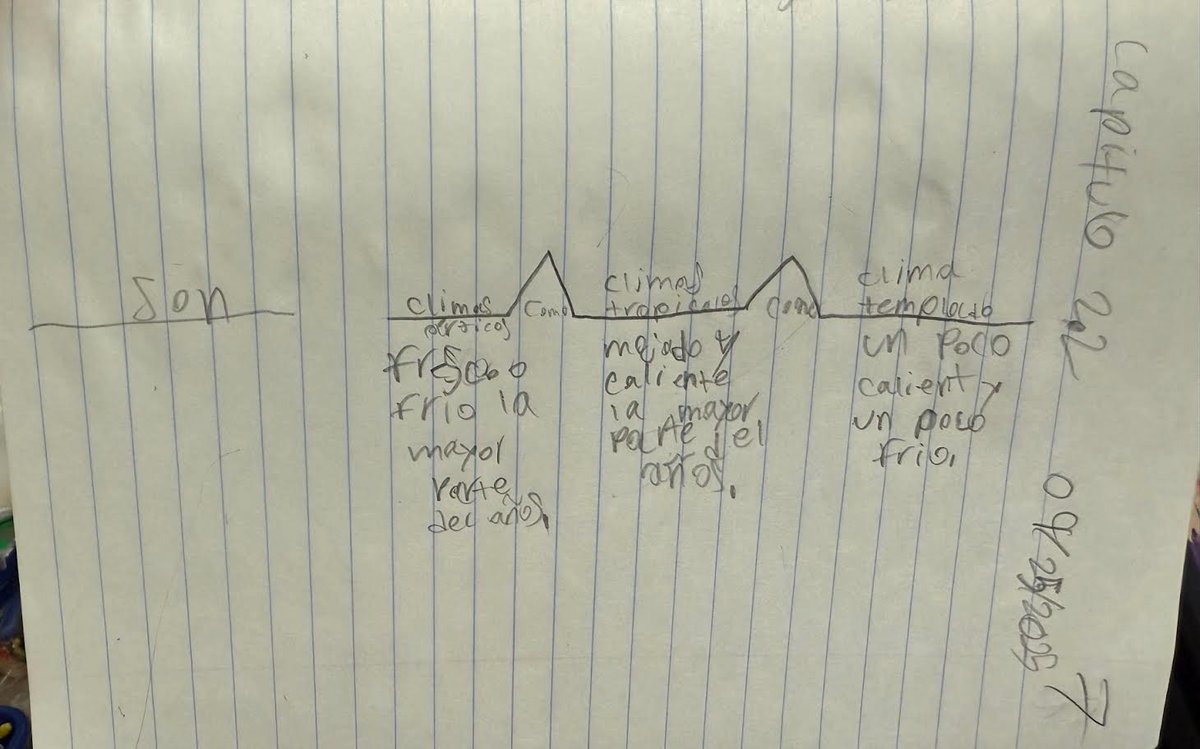 Capitulo 2.2
09/25/2025
7
Son
climas
Como
climas
tropicales
Como
clima
templado
frío la
mayor
parte
del años.
mojado y
caliente
la mayor
parte del
años.
un poco
calient y
un poco
frio.